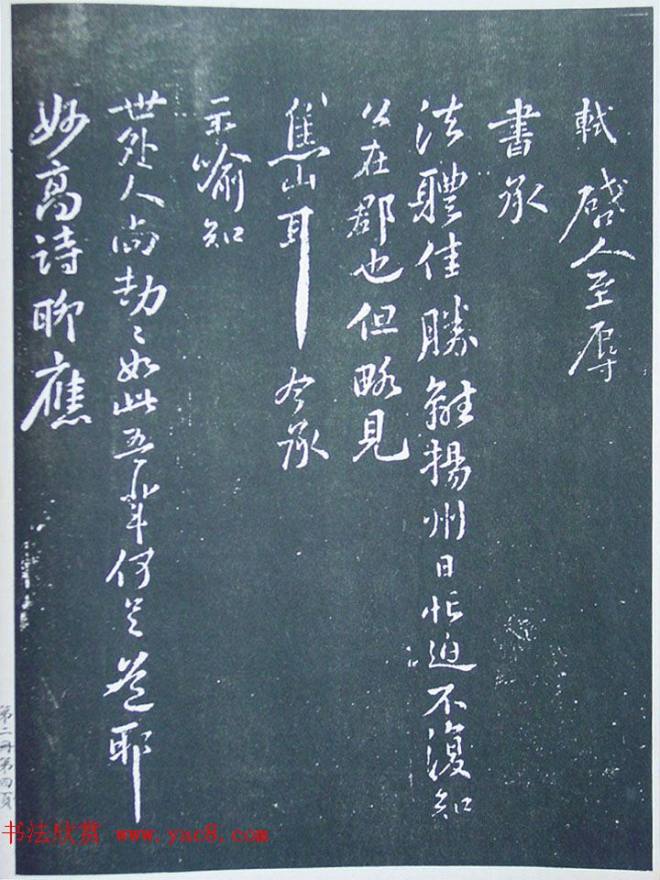 軾啓人至辱
書承
法體佳勝離揚州日忙迫不復知
公在郡也但略見
焦山耳今承
示喻知
世外人尚劫〻如此吾輩何足道耶
妙高詩聊應
第二册第四頁
书法欣赏 www.yac8.com